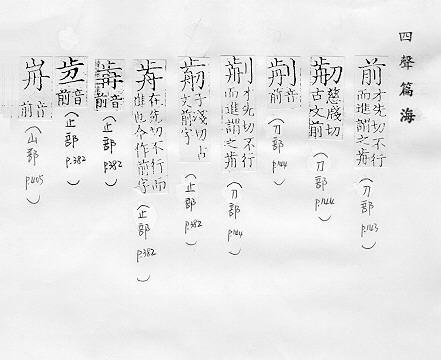 四聲篇海
前 才先切不行而進謂之歬 (刀部 p.143)
慈賤切古文前 (刀部 p.144)
音前 (刀部 p.144)
才先切不行而進謂之歬 (刀部 p.144)
子淺切古文前字 (止部 p.382)
歬 在先切不行而進也今作前字 (止部 p.382)
音前 (止部 p.382)
音前 (止部 p.382)
音前 (山部 p.405)